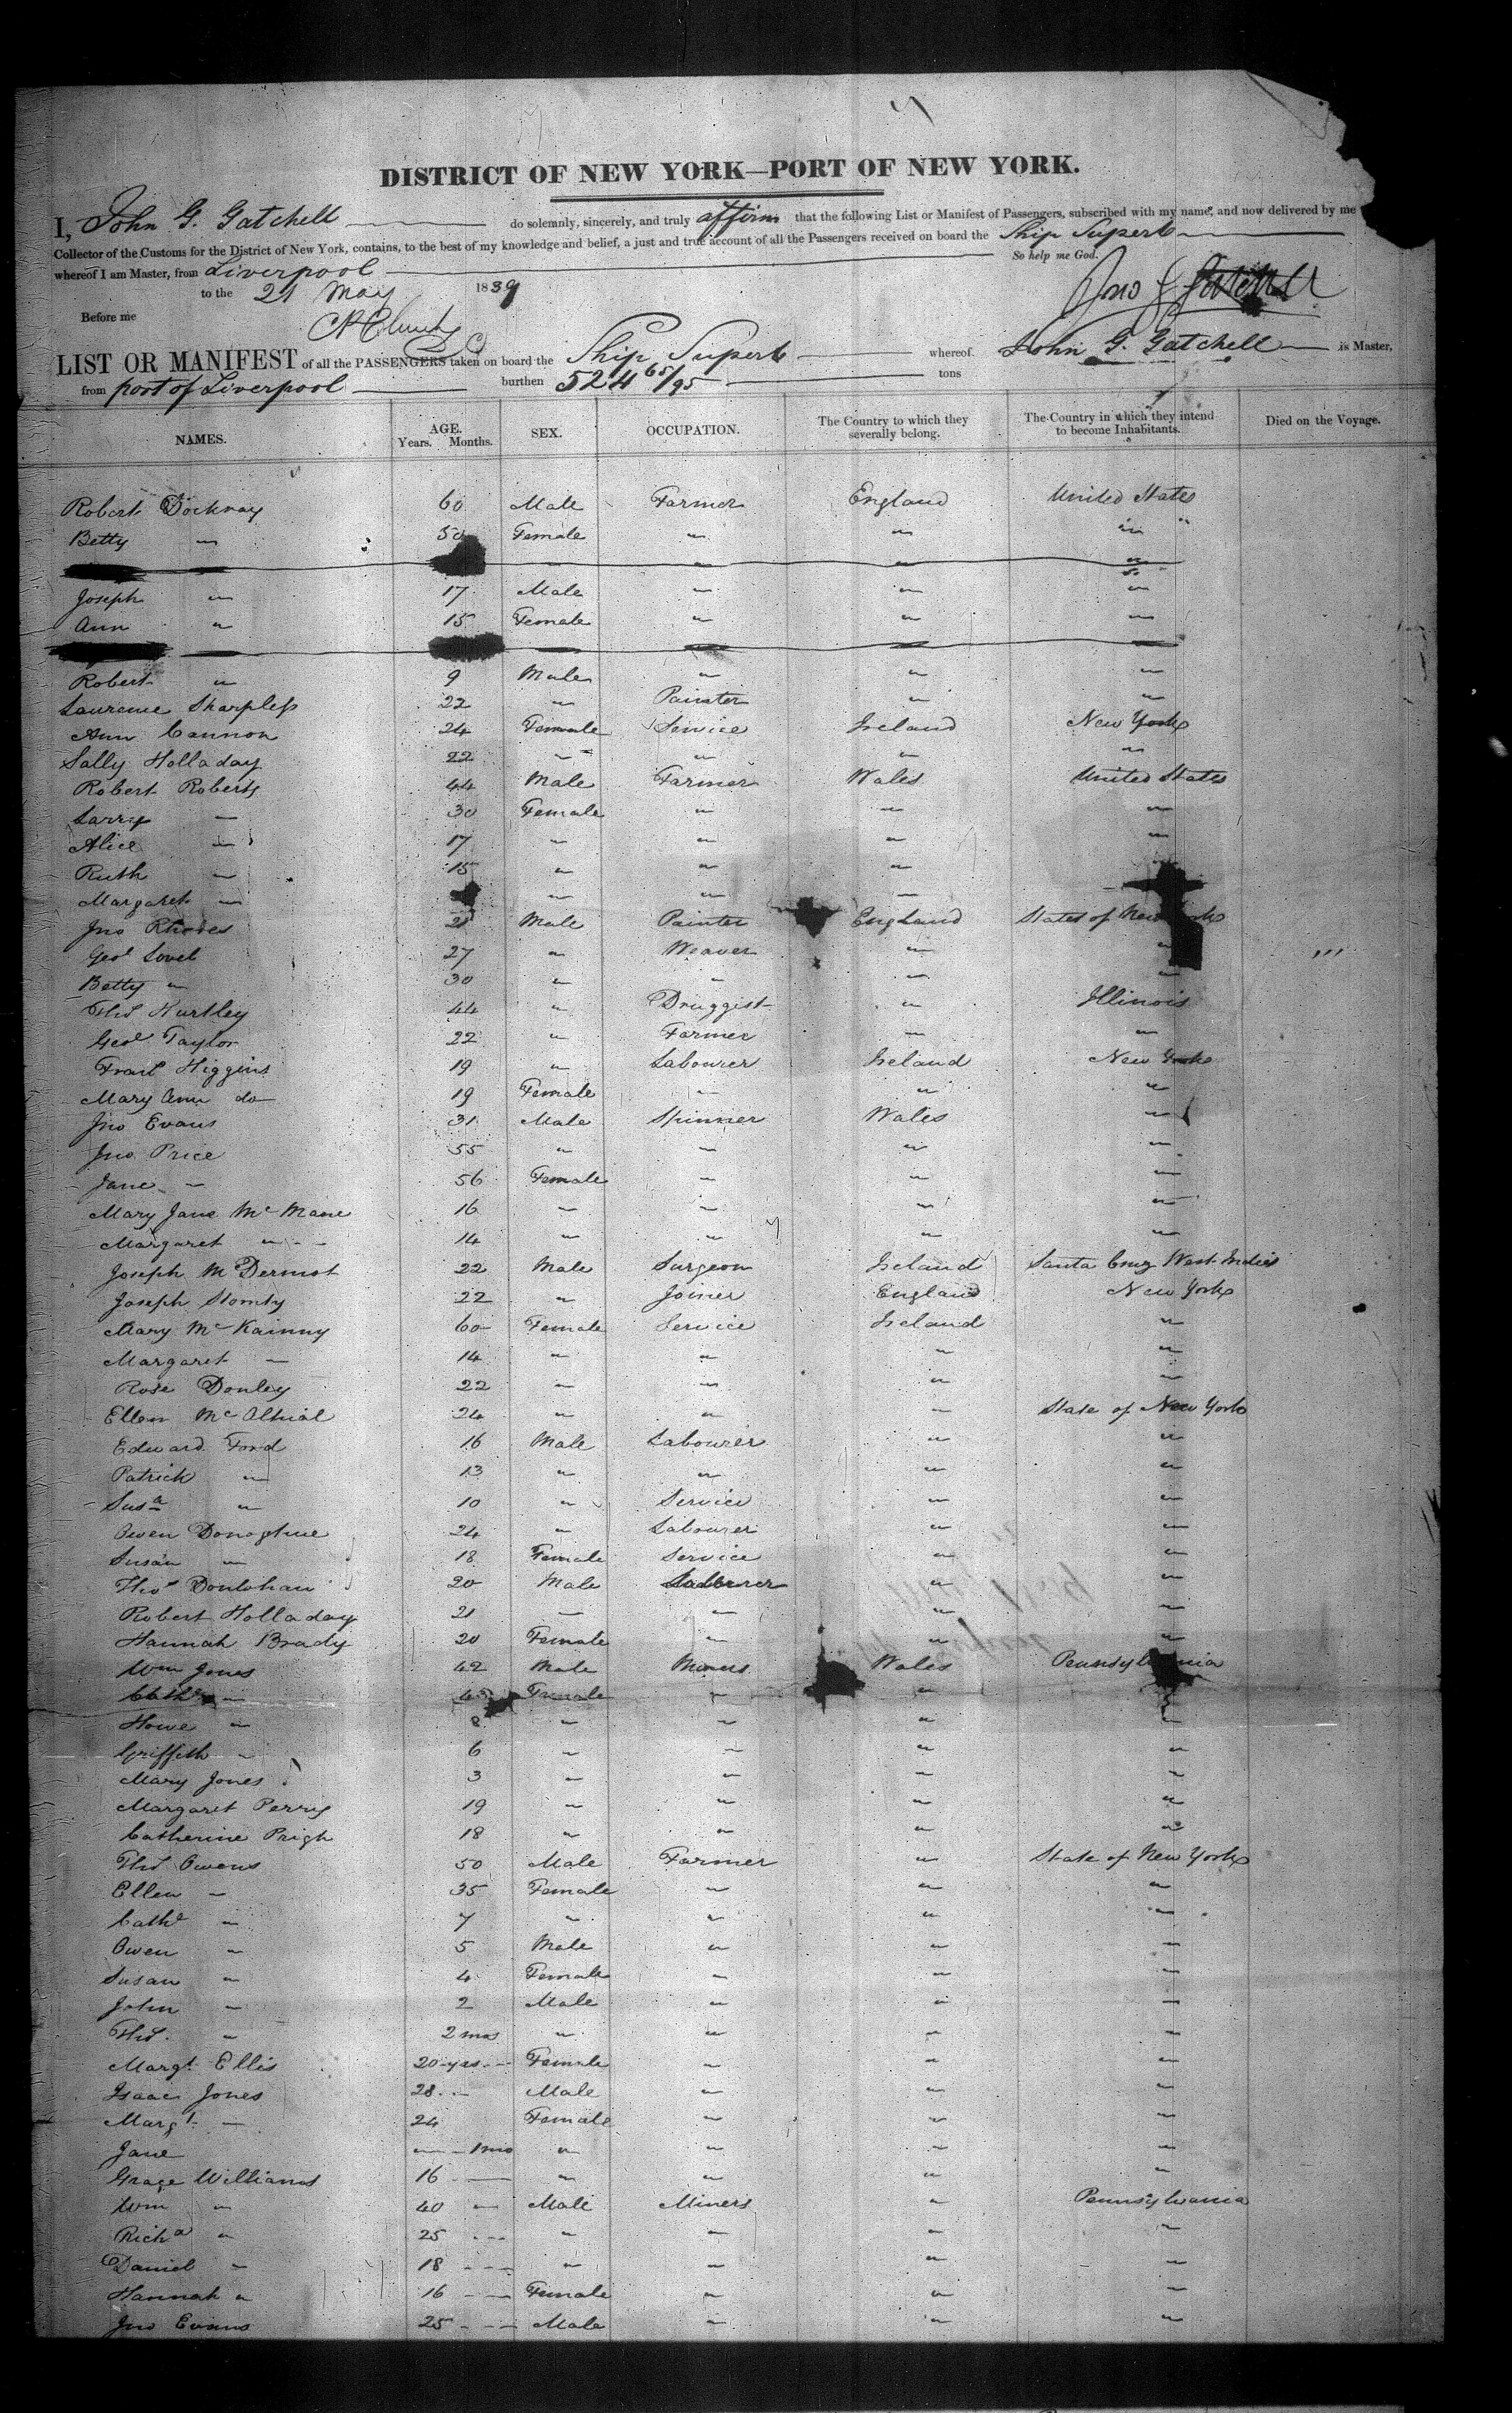 DISTRICT OF NEW YORK—PORT OF NEW YORK.
I, John G. Gatchell do solemnly, sincerely, and truly affirm that the following List or Manifest of Passengers, subscribed with my name, and now delivered by me
Collector of the Customs for the District of New York, contains, to the best of my knowledge and belief, a just and true account of all the Passengers received on board the Ship Superb
whereof I am Master, from Liverpool So help me God.
to the 21 May 1839 Jno G Gatchell
Before me
LIST OR MANIFEST of all the PASSENGERS taken on board the Ship Superb whereof John G. Gatchell is Master,
from port of Liverpool burthen 524 65/95 tons
NAMES. AGE. Years. Months. SEX. OCCUPATION. The Country to which they severally belong. The Country in which they intend to become Inhabitants. Died on the Voyage.
Robert Dockray 60 Male Farmer England United States
Betty " 50 Female " " " "
Joseph " 17 Male " " "
Ann " 15 Female " " "
Robert " 9 Male " " "
Laurence Sharpless 22 " Painter " "
Ann Cannon 24 Female Service Ireland New York
Sally Holladay 22 " " " "
Robert Roberts 44 Male Farmer Wales United States
30 Female " " "
Alice " 17 " " " "
Ruth " 15 " " "
Margaret " " " "
Jno Rhodes 21 Male Painter England States of New York
Geo Lovel 27 " Weaver " "
Betty " 30 " " " "
Thos Hurtley 44 " Druggist " Illinois
Geo Taylor 22 " Farmer " "
Higgins 19 " Labourer Ireland New York
Mary Ann do 19 Female " " "
Jno Evans 31 Male Spinner Wales "
Jno Price 55 " " " "
Jane " 56 Female " " "
Mary Jane Mc Mane 16 " " " "
Margaret " " 14 " " " "
Joseph McDermot 22 Male Surgeon Ireland Santa Cruz West Indies
Joseph 22 " Joiner England New York
Mary Mc Kainny 60 Female Service Ireland "
Margaret " 14 " " " "
Rose Donley 22 " " " "
Ellen Mc 24 " " " State of New York
Edward Ford 16 Male Labourer " "
Patrick " 13 " " " "
Susa " 10 " Service " "
Owen Donoghue 24 " Labourer " "
Susan " 18 Female Service " "
Thos Donlohan 20 Male Labourer " "
Robert Holladay 21 " " " "
Hannah Brady 20 Female " " "
Wm Jones 42 Male Miners Wales Pennsylvania
Cathe " 45 Female " "
Howe " 8 " " " "
Griffeth " 6 " " " "
Mary Jones 3 " " " "
Margaret Perry 19 " " " "
Catherine Prigh 18 " " " "
Thos Owens 50 Male Farmer " State of New York
Ellen " 35 Female " " "
Cathe " 7 " " " "
Owen " 5 Male " " "
Susan " 4 Female " " "
John " 2 Male " " "
Thos. " 2 mos " " " "
Margt Ellis 20 yrs Female " " "
Isaac Jones 28 Male " " "
Margt " 24 Female " " "
Jane 1 mo " " " "
Grace Williams 16 " " " "
Wm " 40 Male Miners " Pennsylvania
Richd " 25 " " " "
Daniel " 18 " " " "
Hannah " 16 Female " " "
Jno Evans 25 Male " " "